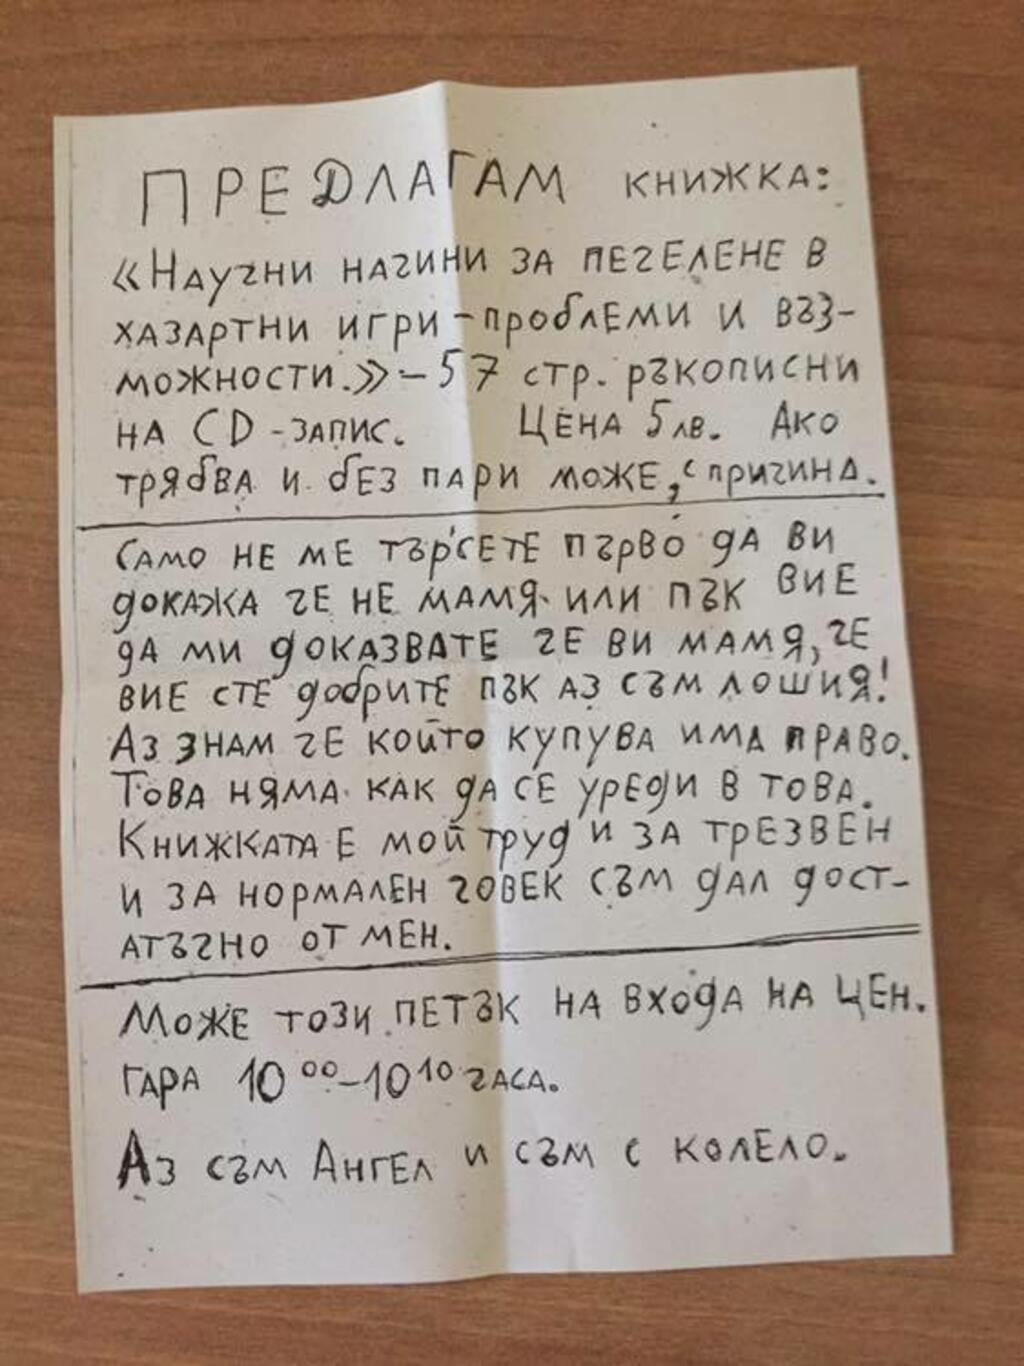 ПРЕДЛАГАМ книжка:
«Научни начини за печелене в
хазартни игри – проблеми и въз-
можности.» – 57 стр. ръкописни
на CD - запис. Цена 5 лв. Ако
трябва и без пари може, с причина.
Само не ме търсете първо да ви
докажа че не мамя или пък вие
да ми доказвате че ви мамя, че
вие сте добрите пък аз съм лошия!
Аз знам че който купува има право.
Това няма как да се уреди в това.
Книжката е мой труд и за трезвен
и за нормален човек съм дал дост-
атъчно от мен.
Може този петък на входа на цен.
гара 10 00 – 10 10 часа.
Аз съм Ангел и съм с колело.